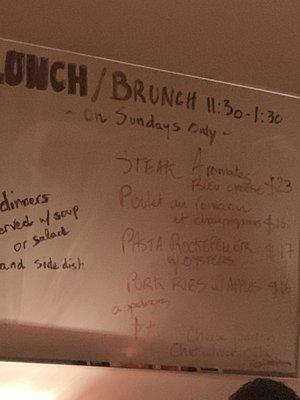 LUNCH/BRUNCH 11:30-1:30
- on Sundays only -
dinners
served w/ soup
or salad
and side dish
STEAK Aromates
Bleu cheese $23
Poulet au
et champignons $16
PASTA ROCKEFELLER $17
w/ OYSTERS
PORK RIBS w/ APPLES $16